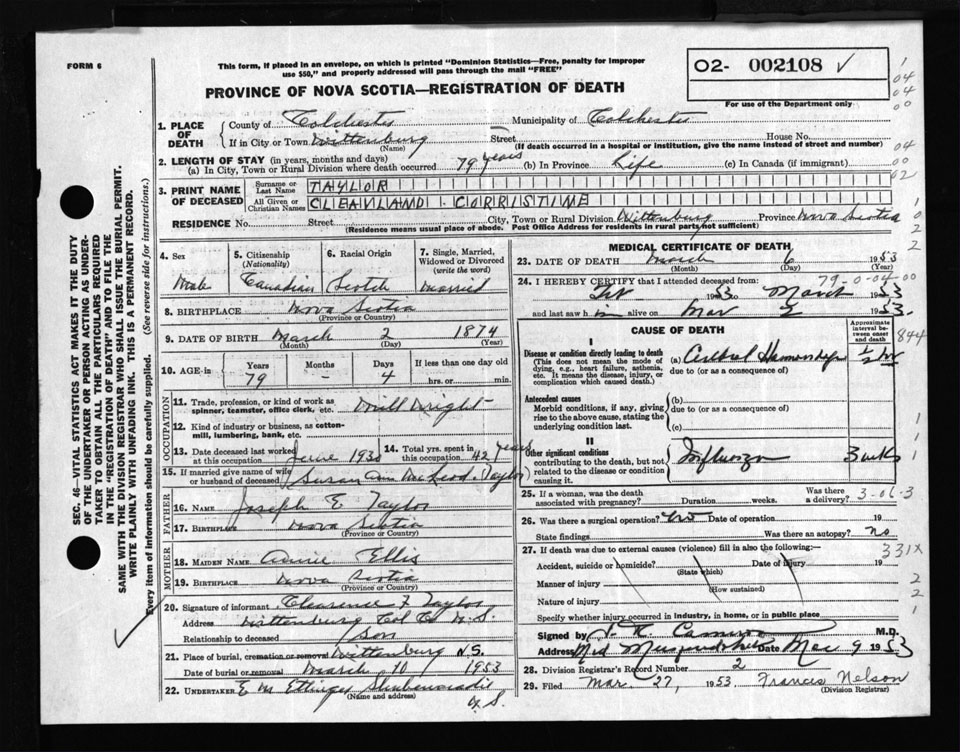 FORM 6
This form, if placed in an envelope, on which is printed "Dominion Statistics—Free, penalty for improper
use $50," and properly addressed will pass through the mail "FREE"
PROVINCE OF NOVA SCOTIA—REGISTRATION OF DEATH
02- 002108 ✓
For use of the Department only
1. PLACE OF DEATH
County of Colchester Municipality of Colchester
If in City or Town Wittenburg Street House No.
(Name) (If death occurred in a hospital or institution, give the name instead of street and number)
2. LENGTH OF STAY (in years, months and days)
(a) In City, Town or Rural Division where death occurred 79 years (b) In Province Life (c) In Canada (if immigrant)
3. PRINT NAME OF DECEASED
Surname or Last Name TAYLOR
All Given or Christian Names CLEAVLAND CORRISTINE
RESIDENCE No. Street City, Town or Rural Division Wittenburg Province Nova Scotia
(Residence means usual place of abode. Post Office Address for residents in rural parts not sufficient)
4. Sex Male
5. Citizenship (Nationality) Canadian
6. Racial Origin Scotch
7. Single, Married, Widowed or Divorced (write the word) Married
8. BIRTHPLACE Nova Scotia
(Province or Country)
9. DATE OF BIRTH March 2 1874
(Month) (Day) (Year)
10. AGE—in Years 79 Months - Days 4 If less than one day old hrs. or min.
OCCUPATION
11. Trade, profession, or kind of work as spinner, teamster, office clerk, etc. Mill Wright
12. Kind of industry or business, as cotton-mill, lumbering, bank, etc.
13. Date deceased last worked at this occupation June 1930
14. Total yrs. spent in this occupation 42 years
15. If married give name of wife or husband of deceased Susan Ann McLeod Taylor
FATHER
16. NAME Joseph E Taylor
17. BIRTHPLACE Nova Scotia
(Province or Country)
MOTHER
18. MAIDEN NAME Annie Ellis
19. BIRTHPLACE Nova Scotia
(Province or Country)
20. Signature of informant Clarence F Taylor
Address Wittenburg Col Co N.S.
Relationship to deceased Son
21. Place of burial, cremation or removal Wittenburg N.S.
Date of burial or removal March 10 1953
22. UNDERTAKER E M Ettinger Shubenacadie
(Name and address)
N.S.
MEDICAL CERTIFICATE OF DEATH
23. DATE OF DEATH March 6 1953
(Month) (Day) (Year)
24. I HEREBY CERTIFY that I attended deceased from: 79-0-04-00
1953 to March 1953
and last saw h alive on Mar 1953.
CAUSE OF DEATH
Approximate interval between onset and death
844
I
Disease or condition directly leading to death
(This does not mean the mode of dying, e.g., heart failure, asthenia, etc. It means the disease, injury, or complication which caused death.)
(a) Cerebral Hemorrhage
due to (or as a consequence of)
Antecedent causes
Morbid conditions, if any, giving rise to the above cause, stating the underlying condition last.
(b)
due to (or as a consequence of)
(c)
II
Other significant conditions
contributing to the death, but not related to the disease or condition causing it.
Influenza 3 wks
25. If a woman, was the death associated with pregnancy? Duration weeks. Was there a delivery? 3-06-3
26. Was there a surgical operation? No Date of operation 19
State findings Was there an autopsy? No
27. If death was due to external causes (violence) fill in also the following:— 331X
Accident, suicide or homicide? Date of injury 19
(State which)
Manner of injury
(How sustained)
Nature of injury
Specify whether injury occurred in industry, in home, or in public place
Signed by Cameron M.D.
Address Mid Musquodoboit Date Mar 9 1953
28. Division Registrar's Record Number 2
29. Filed Mar. 27, 1953 Francis Nelson
(Division Registrar)
SEC. 46—VITAL STATISTICS ACT MAKES IT THE DUTY
OF THE UNDERTAKER OR PERSON ACTING AS UNDER-
TAKER TO OBTAIN ALL THE PARTICULARS REQUIRED
IN THE "REGISTRATION OF DEATH" AND TO FILE THE
SAME WITH THE DIVISION REGISTRAR WHO SHALL ISSUE THE BURIAL PERMIT.
WRITE PLAINLY WITH UNFADING INK. THIS IS A PERMANENT RECORD.
Every item of information should be carefully supplied. (See reverse side for instructions.)